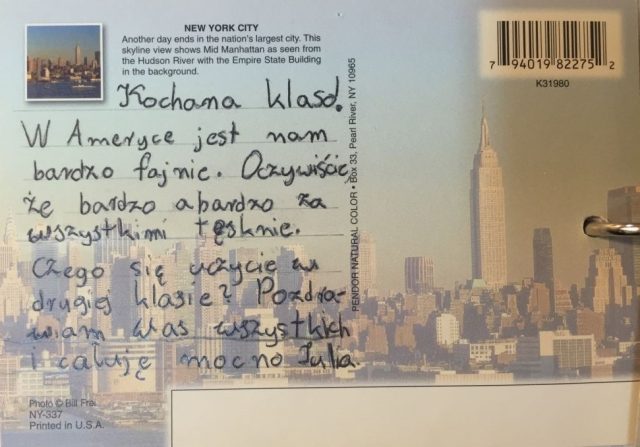 NEW YORK CITY
Another day ends in the nation's largest city. This
skyline view shows Mid Manhattan as seen from
the Hudson River with the Empire State Building
in the background.
7 94019 82275 2
K31980
PENDOR NATURAL COLOR • Box 33, Pearl River, NY 10965
Kochana klaso!
W Ameryce jest nam
bardzo fajnie. Oczywiście,
że bardzo abardzo za
wszystkimi tęsknie.
Czego się uczycie w
drugiej klasie? Pozdra-
wiam was wszystkich
i całuję mocno Julia
Photo © Bill Frei
NY-337
Printed in U.S.A.